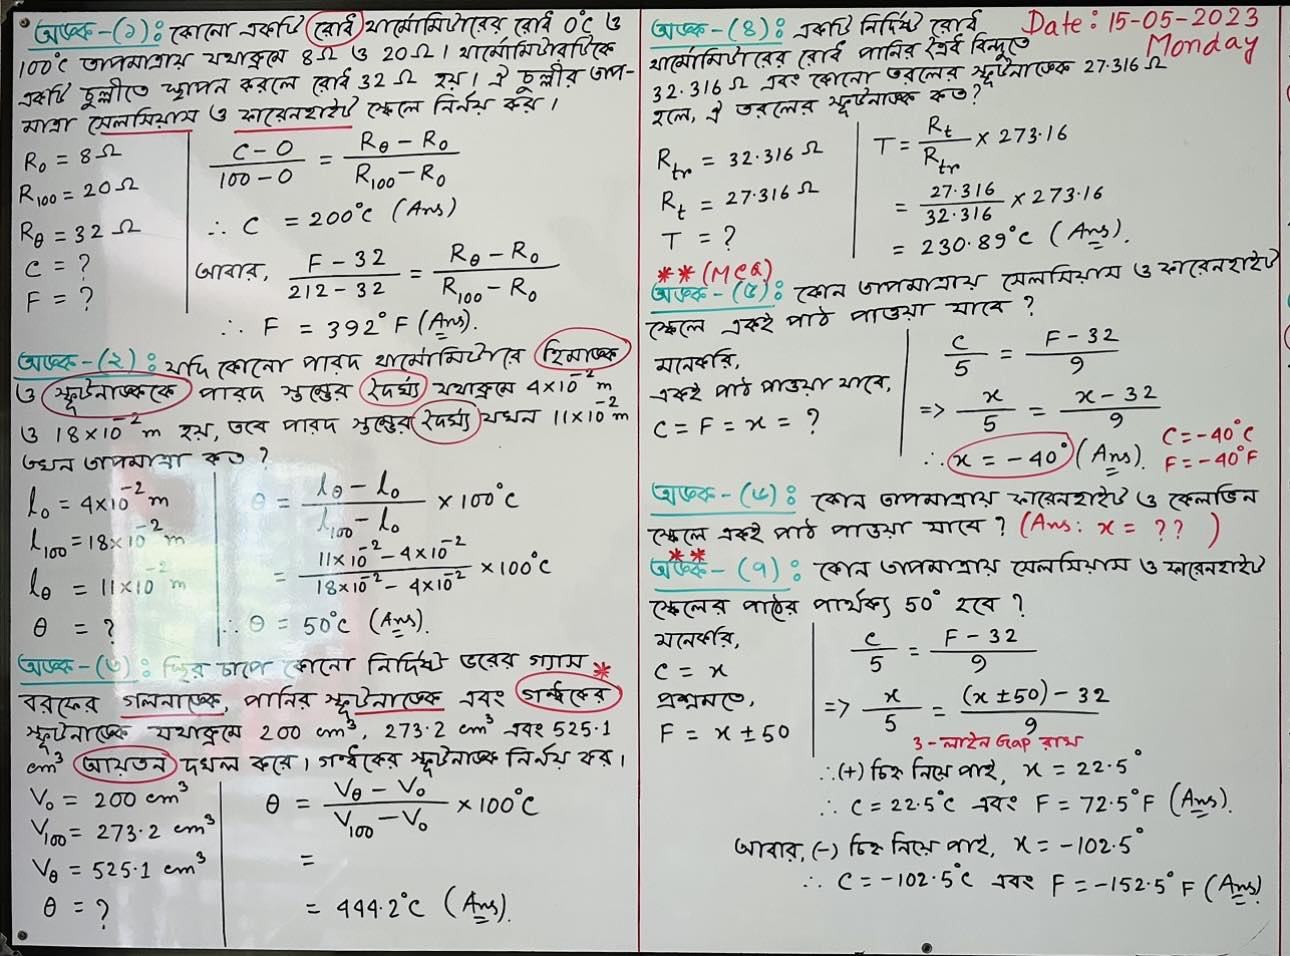 অঙ্ক-(১): কোনো একটি রোধ থার্মোমিটারের রোধ 0°C ও
100°C তাপমাত্রায় যথাক্রমে 8Ω ও 20Ω। থার্মোমিটারটিকে
একটি চুল্লীতে স্থাপন করলে রোধ 32 Ω হয়। ঐ চুল্লীর তাপ-
মাত্রা সেলসিয়াস ও ফারেনহাইট স্কেলে নির্ণয় কর।
R₀ = 8Ω
R₁₀₀ = 20Ω
R_θ = 32Ω
C = ?
F = ?
(C - 0)/(100 - 0) = (R_θ - R₀)/(R₁₀₀ - R₀)
∴ C = 200°C (Ans)
আবার, (F - 32)/(212 - 32) = (R_θ - R₀)/(R₁₀₀ - R₀)
∴ F = 392°F (Ans).
অঙ্ক-(২): যদি কোনো পারদ থার্মোমিটারে হিমাঙ্ক
ও স্ফূটনাঙ্ককে পারদ স্তম্ভের দৈর্ঘ্য যথাক্রমে 4×10⁻² m
ও 18×10⁻² m হয়, তবে পারদ স্তম্ভের দৈর্ঘ্য যখন 11×10⁻² m
তখন তাপমাত্রা কত ?
l₀ = 4×10⁻² m
l₁₀₀ = 18×10⁻² m
l_θ = 11×10⁻² m
θ = ?
θ = (l_θ - l₀)/(l₁₀₀ - l₀) × 100°C
= (11×10⁻² - 4×10⁻²)/(18×10⁻² - 4×10⁻²) × 100°C
∴ θ = 50°C (Ans).
অঙ্ক-(৩): স্থির চাপে কোনো নির্দিষ্ট ভরের গ্যাস *
বরফের গলনাঙ্কে, পানির স্ফূটনাঙ্কে এবং গন্ধকের
স্ফূটনাঙ্কে যথাক্রমে 200 cm³, 273.2 cm³ এবং 525.1
cm³ আয়তন দখল করে। গন্ধকের স্ফূটনাঙ্ক নির্ণয় কর।
V₀ = 200 cm³
V₁₀₀ = 273.2 cm³
V_θ = 525.1 cm³
θ = ?
θ = (V_θ - V₀)/(V₁₀₀ - V₀) × 100°C
=
= 444.2°C (Ans).
Date: 15-05-2023
Monday
অঙ্ক-(৪): একটি নির্দিষ্ট রোধ
থার্মোমিটারের রোধ পানির ত্রৈধ বিন্দুতে
32.316 Ω এবং কোনো তরলের স্ফূটনাঙ্কে 27.316 Ω
হলে, ঐ তরলের স্ফূটনাঙ্ক কত?
R_tr = 32.316 Ω
R_t = 27.316 Ω
T = ?
T = R_t/R_tr × 273.16
= 27.316/32.316 × 273.16
= 230.89°C (Ans).
**(MCQ)
অঙ্ক-(৫): কোন তাপমাত্রায় সেলসিয়াস ও ফারেনহাইট
স্কেলে একই পাঠ পাওয়া যাবে ?
মনেকরি,
একই পাঠ পাওয়া যাবে,
C = F = x = ?
C/5 = (F - 32)/9
=> x/5 = (x - 32)/9
∴ x = -40° (Ans).
C = -40°C
F = -40°F
অঙ্ক-(৬): কোন তাপমাত্রায় ফারেনহাইট ও কেলভিন
স্কেলে একই পাঠ পাওয়া যাবে ? (Ans: x = ?? )
**
অঙ্ক-(৭): কোন তাপমাত্রায় সেলসিয়াস ও ফারেনহাইট
স্কেলের পাঠের পার্থক্য 50° হবে ?
মনেকরি,
C = x
প্রশ্নমতে,
F = x ± 50
C/5 = (F - 32)/9
=> x/5 = ((x ± 50) - 32)/9
3-লাইন Gap রাখ
∴ (+) চিহ্ন নিয়ে পাই, x = 22.5°
∴ C = 22.5°C এবং F = 72.5°F (Ans).
আবার, (-) চিহ্ন নিয়ে পাই, x = -102.5°
∴ C = -102.5°C এবং F = -152.5°F (Ans)